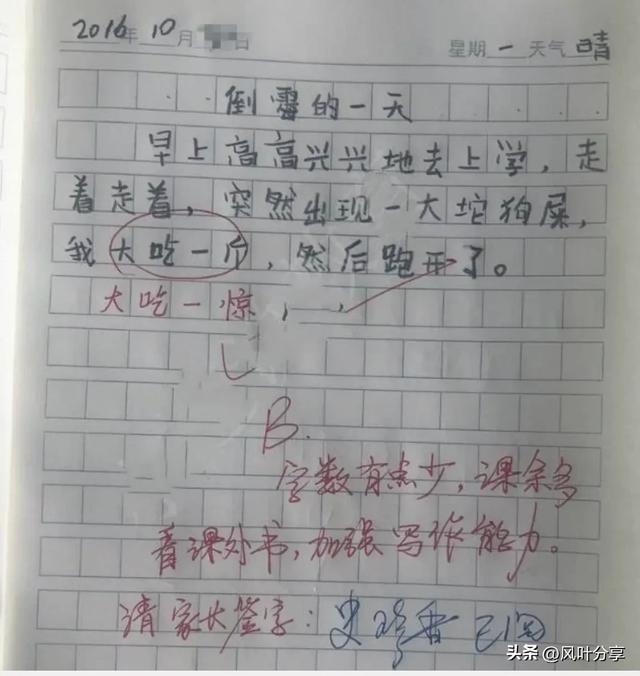 2016年 10月 日 星期一 天气晴
倒霉的一天
早上高高兴兴地去上学，走
着走着，突然出现一大坨狗屎，
我大吃一斤，然后跑开了。
大吃一惊，
B.
字数有点少，课余多
看课外书，加强写作能力。
请家长签字：史珍香 已阅
头条 @风叶分享